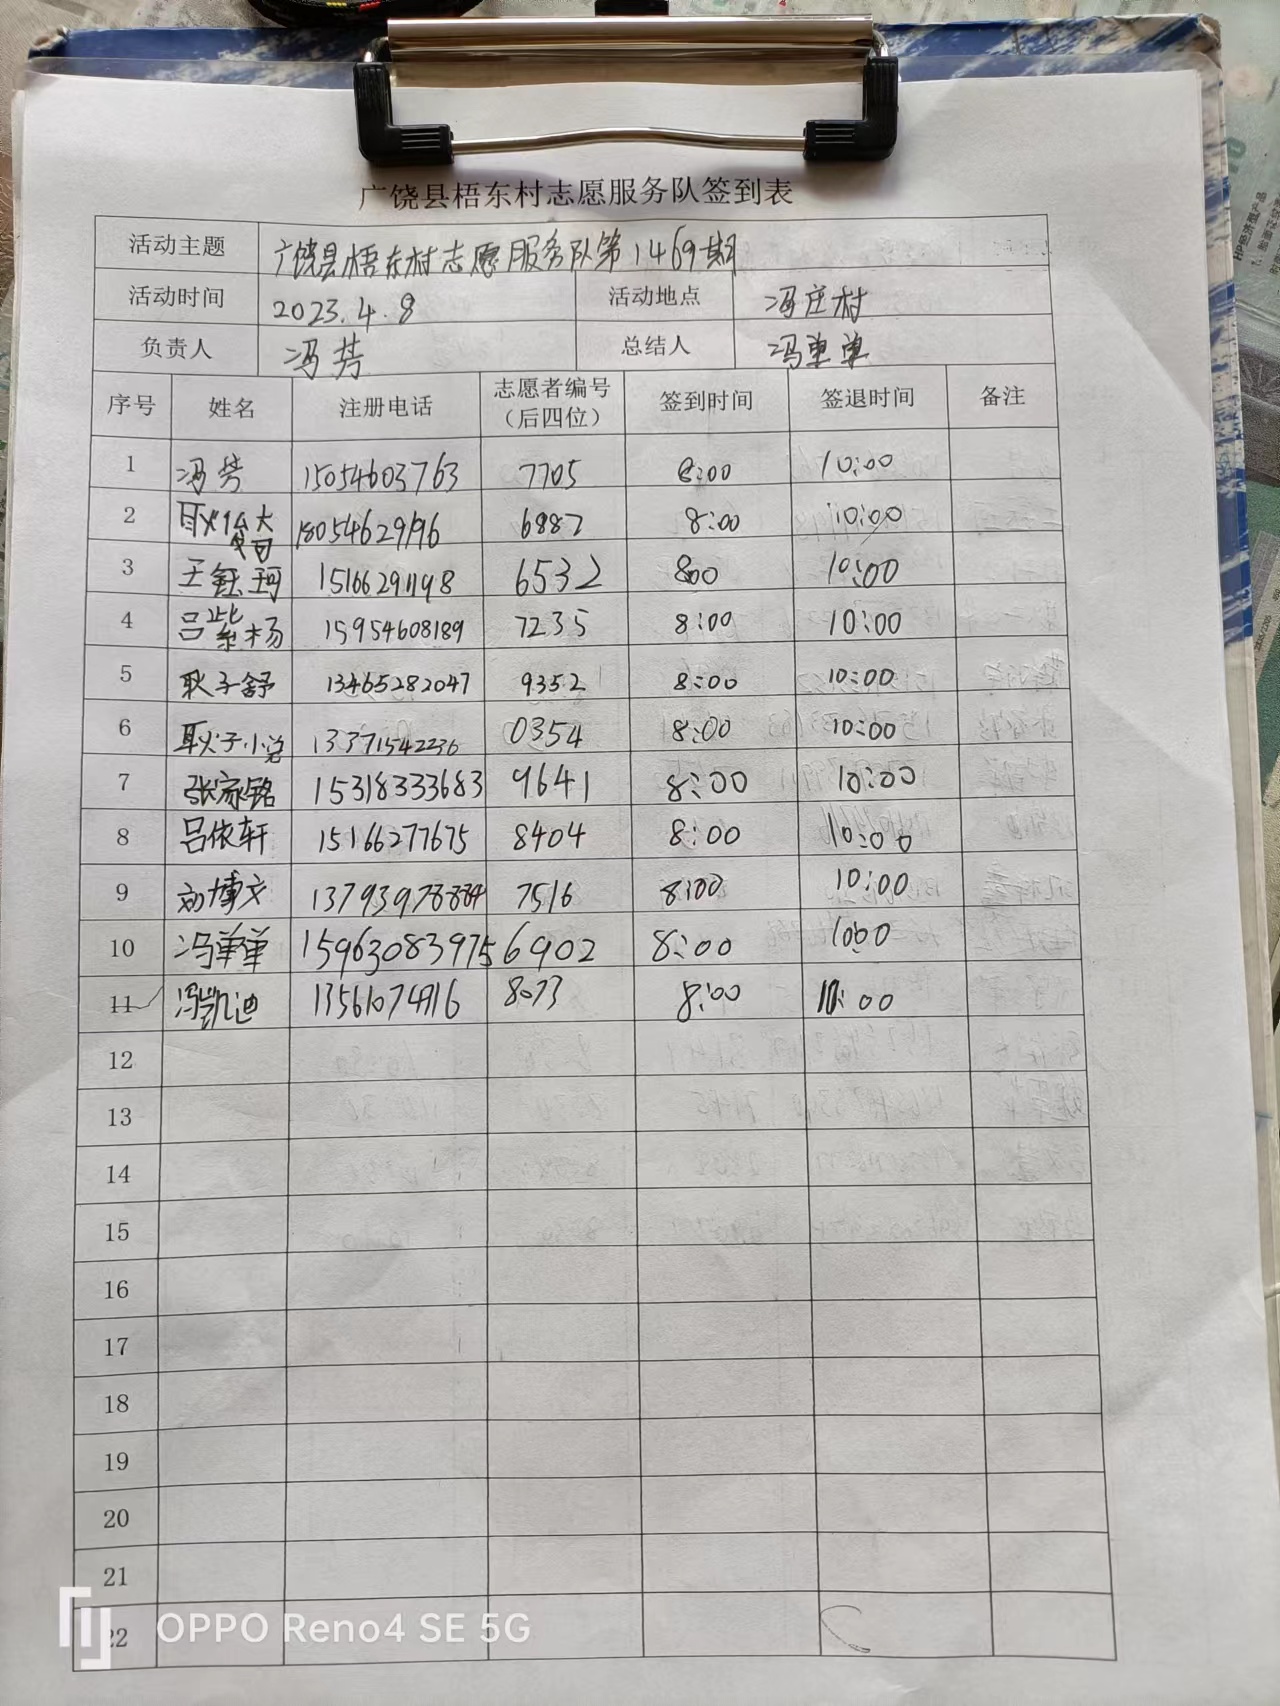 广饶县梧东村志愿服务队签到表
活动主题 广饶县梧东村志愿服务队第1469期
活动时间 2023.4.8 活动地点 冯庄村
负责人 冯芳 总结人 冯单单
序号 姓名 注册电话 志愿者编号（后四位） 签到时间 签退时间 备注
1 冯芳 15054603763 7705 8:00 10:00
2 18054629196 6882 8:00 10:00
3 王钰珂 15166291198 6532 800 10:00
4 吕紫杨 15954608189 7235 8:00 10:00
5 耿子舒 13465282047 9352 8:00 10:00
6 耿子 13371542236 0354 8:00 10:00
7 张家铭 15318333683 9641 8:00 10:00
8 吕依轩 15166277675 8404 8:00 10:00
9 刘博文 7516 8:00 10:00
10 冯单单 15963083975 6902 8:00 10:00
11 冯凯迪 8073 8:00 10:00
12
13
14
15
16
17
18
19
20
21
22
OPPO Reno4 SE 5G